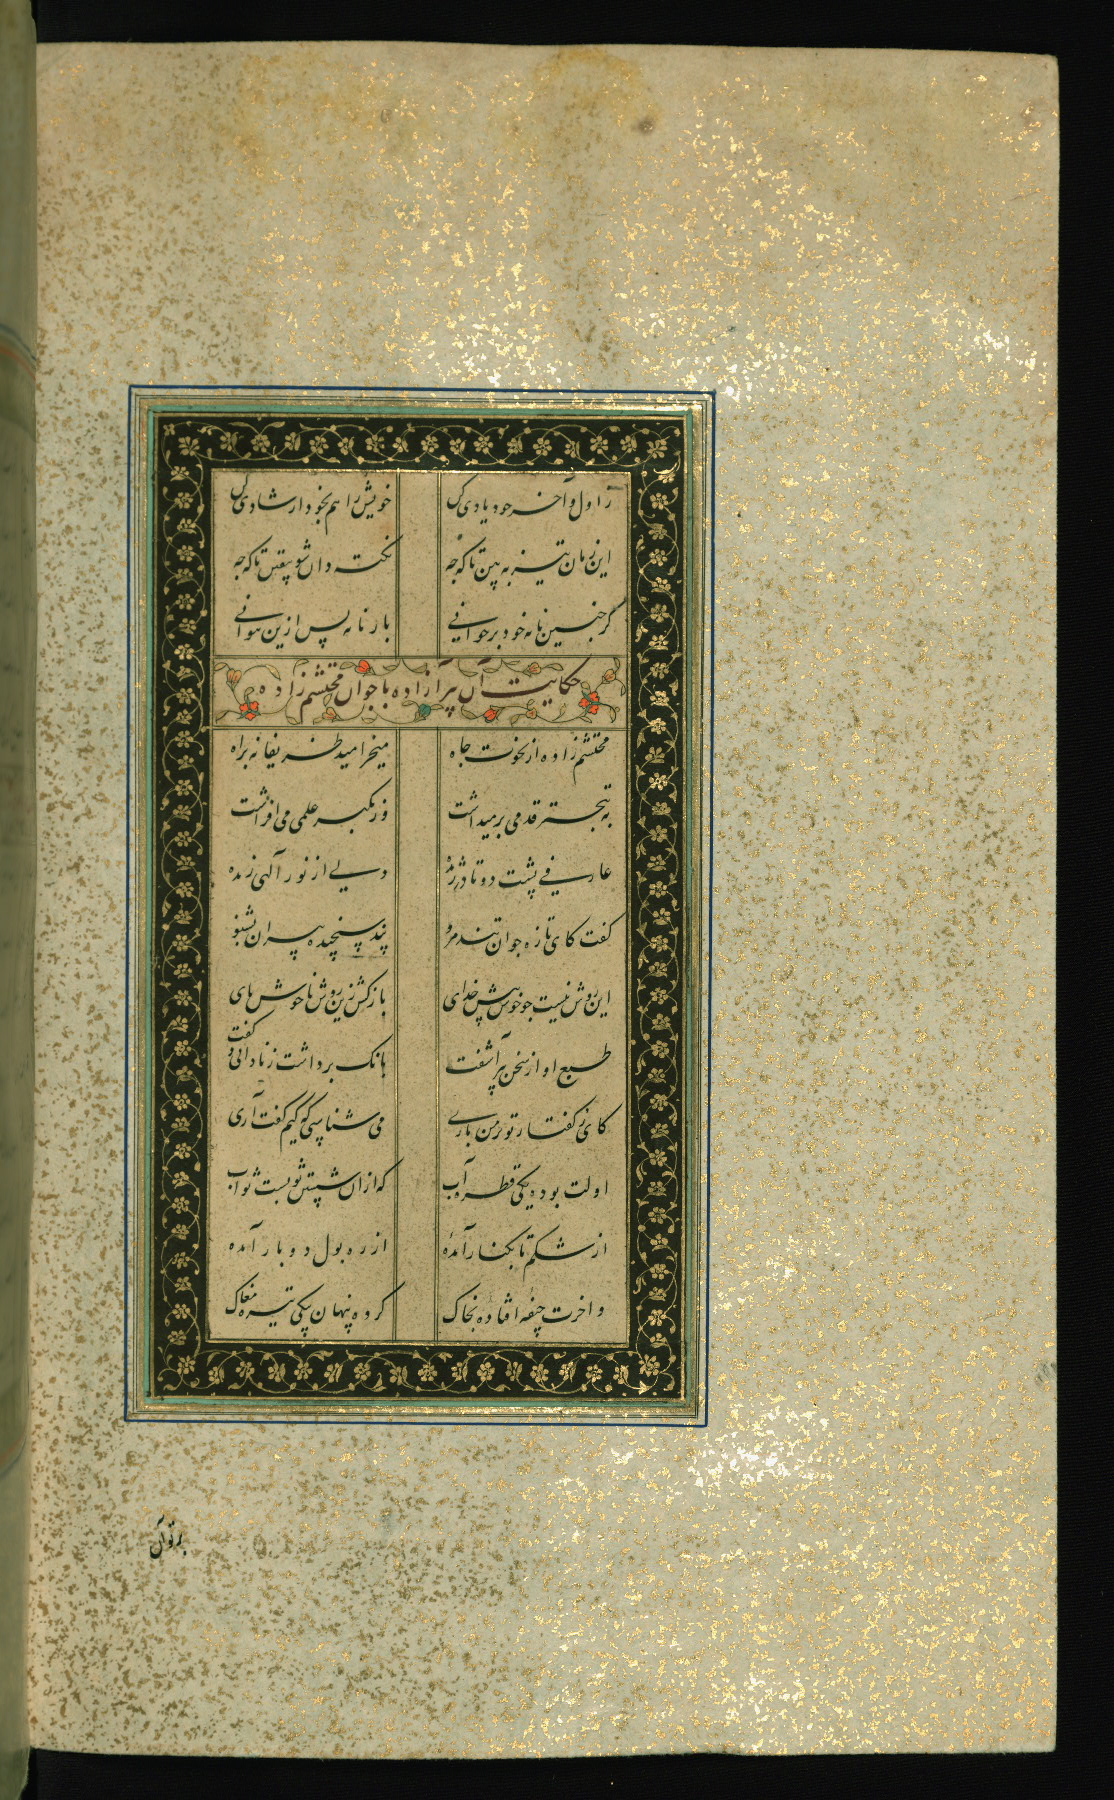 ز اول و آخر خود یاد کن خویش را هم بخود ارشادی کن
این زمان تیز به بین تا که چه نکته دان شو پسش تا که چه
گر چنین نامه خود بر خوانی بار نامه پس ازین نتوانی
حکایت آن پیر آزاده با جوان محتشم زاده
محتشم زاده از نخوت جاه میخرامید ظریفانه براه
به تبختر قدمی برمیداشت وز تکبر علمی می افراشت
عارفی پشت دو تا در ژنده دلی از نور آلهی زنده
گفت کای تازه جوان تند مرو پند سنجیده پیران بشنو
این روش نیست چو خوش پیش خدای بازکش زین روش ناخوش پای
طبع او از سخن پیر آشفت بانک برداشت ز نادانی و گفت
کای ز گفتار تو بر من باری می شناسی که کیم گفت آری
اولت بوده یکی قطره آب که ازان شستن ثوبست ثواب
از شکم تا بکنار آمده از ره بول دو بار آمده
واخرت جیفه افتاده بخاک کرده پنهان یکی تیره مغاک
بر تو آن